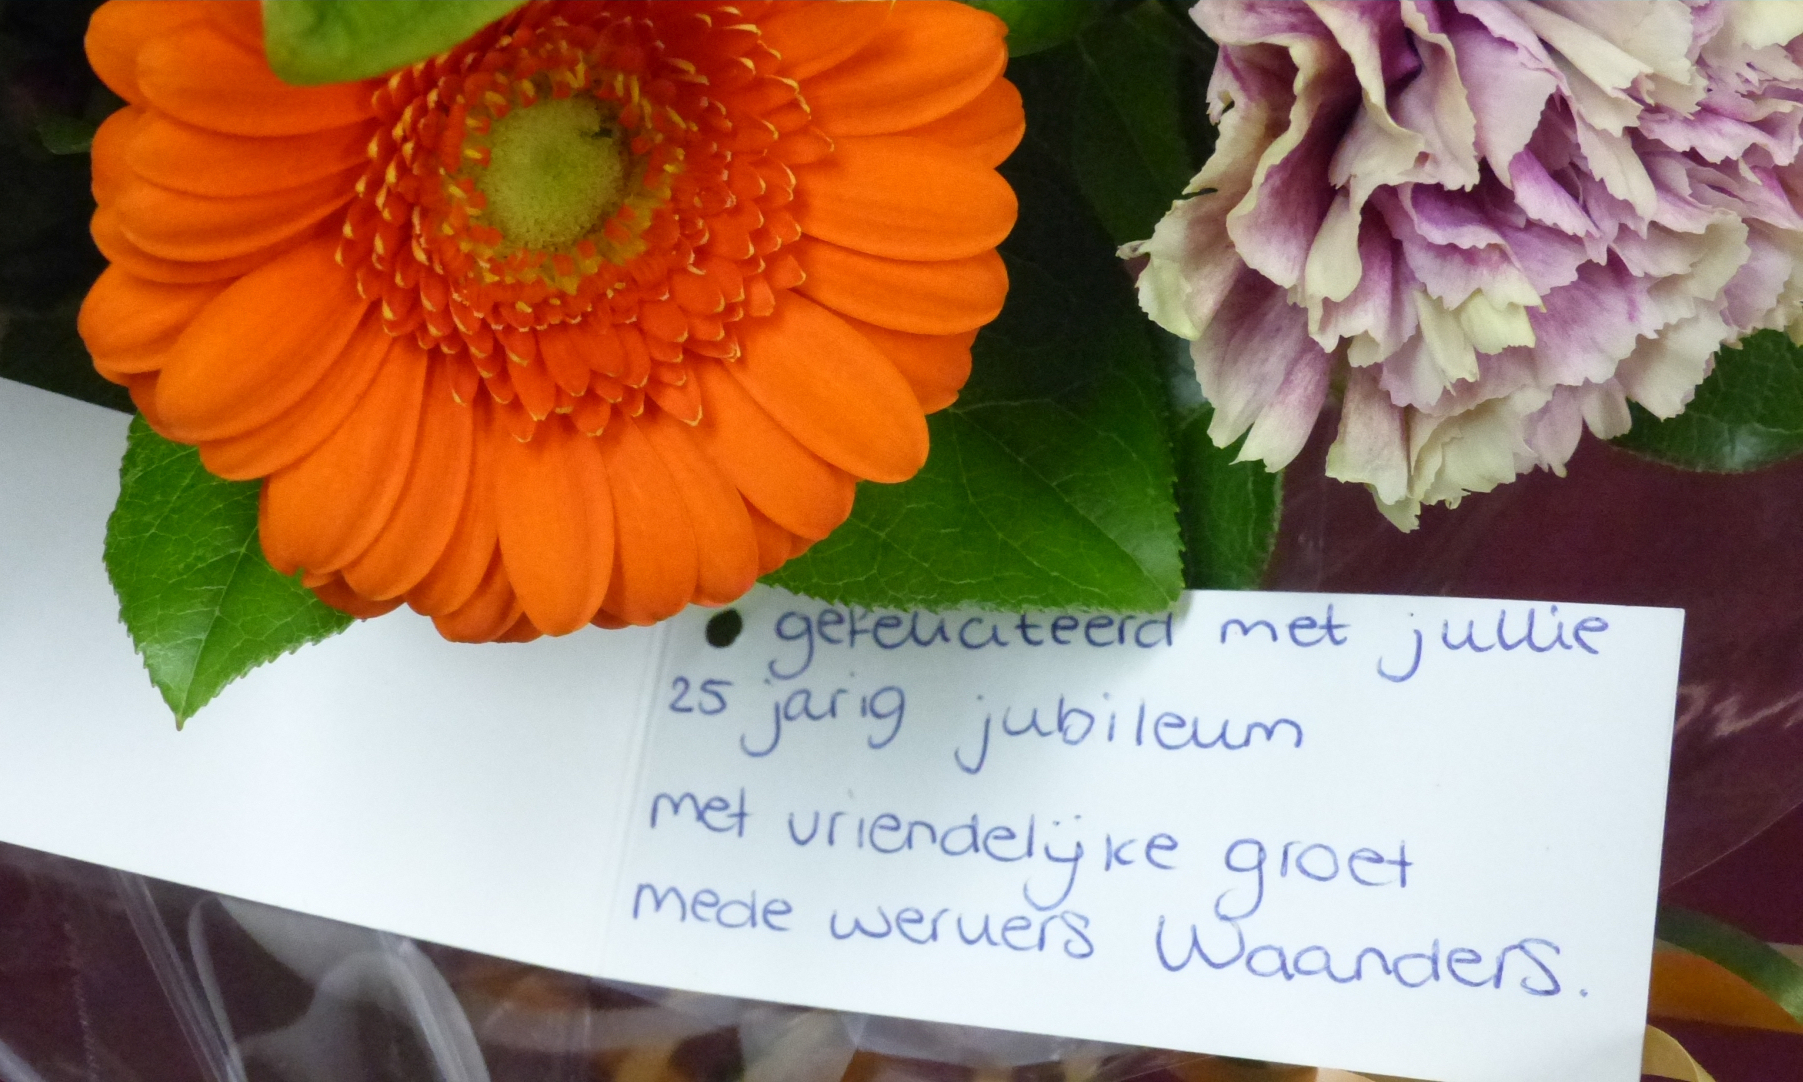 gefeliciteerd met jullie
25 jarig jubileum
met vriendelijke groet
mede wervers Waanders.